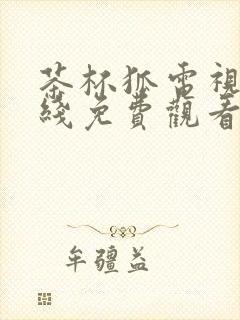 茶杯狐電視
綫免費觀看
牟疆益